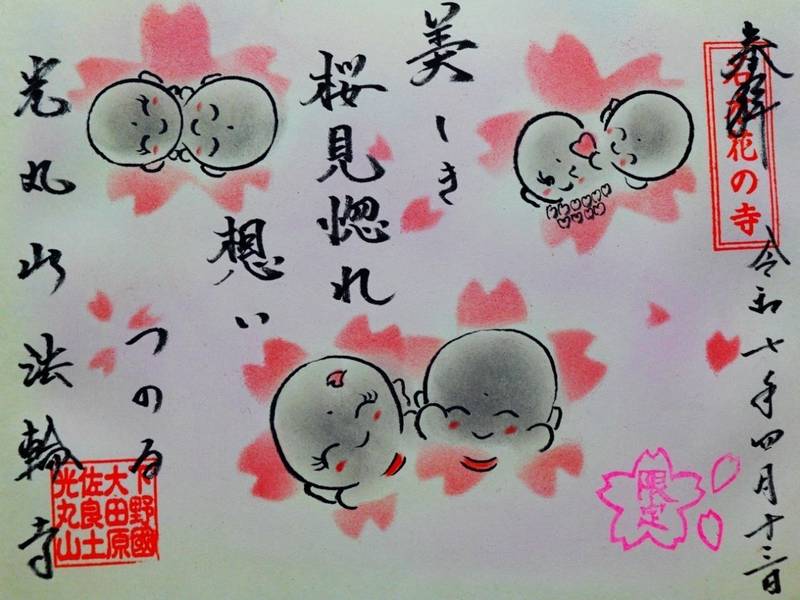 奉拝
花の寺
令和七年四月十三日
美しき
桜見惚れ
想い
つのる
光丸山法輪寺
下野國
大田原
佐良土
光丸山
限定